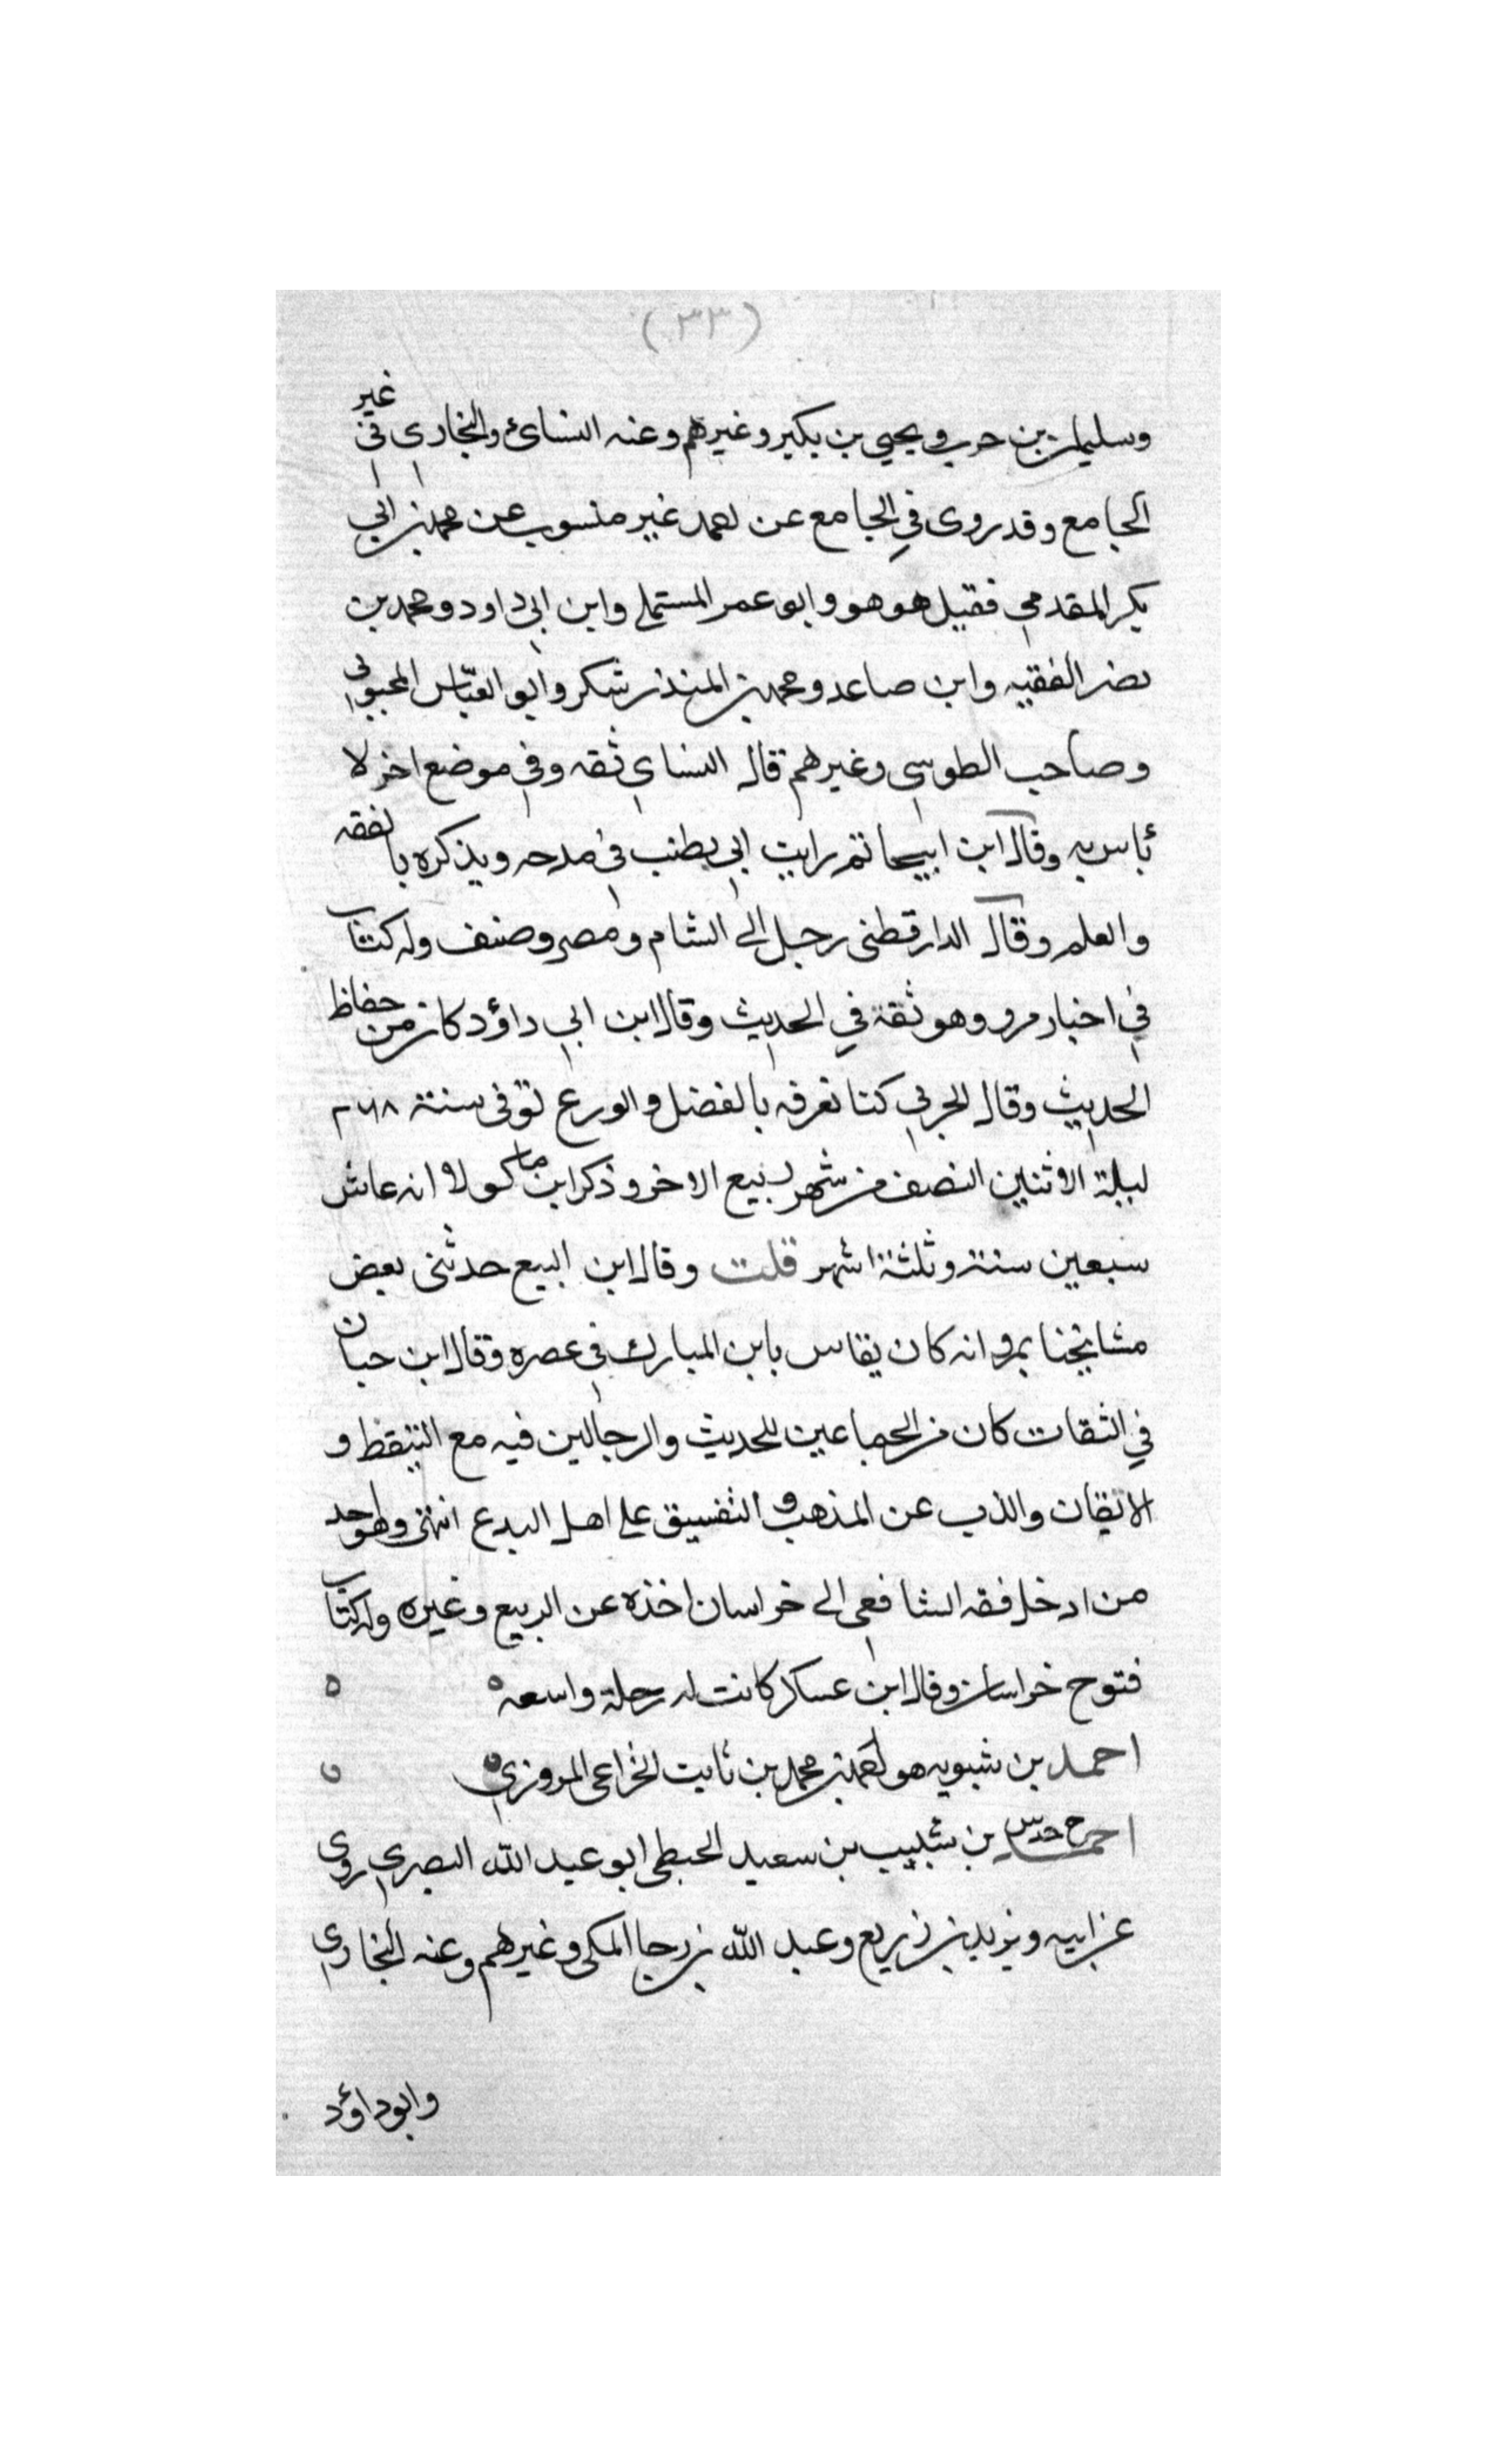 (٣٣)
وسليمان بن حرب ويحيى بن بكير وغيرهم وعنه النسائ والبخارى فى غير
الجامع وقد روى في الجامع عن احمد غير منسوب عن محمد بن ابي
بكر المقدمي فقيل هو هو وابو عمر المستملي وابن ابي داود ومحمد بن
نصر الفقيه وابن صاعد ومحمد بن المنذر شكر وابو العباس المحبوبي
وصاحب الطوسي وغيرهم قال النساي ثقه وفي موضع اخر لا
بأس به وقال ابن ابيحاتم رايت ابي يطنب في مدحه ويذكره بالفقه
والعلم وقال الدارقطنى رحل الى الشام ومصر وصنف وله كتاب
في اخبار مرو وهو ثقة في الحديث وقال ابن ابي داؤد كان من حفاظ
الحديث وقال كنا نعرفه بالفضل والورع توفى سنة ٢٦٨
ليلة الاثنين النصف من شهر ربيع الاخر وذكر ابن ماكولا انه عاش
سبعين سنة وثلثة اشهر قلت وقال ابن البيع حدثنى بعض
مشايخنا بمرو انه كان يقاس بابن المبارك في عصره وقال ابن حبان
في الثقات كان من الجماعين للحديث والرحالين فيه مع التيقظ و
الاتقان والذب عن المذهب و على اهل البدع انتهى وهو احد
من ادخل فقه الشافعى الى خراسان اخذه عن الربيع وغيره وله كتاب
فتوح خراسان وقال ابن عساكر كانت له رحلة واسعه ه ه
احمد بن شبويه هو احمد بن محمد بن ثابت الخزاعى المروزي ه ه
احمد خ خد س بن شبيب بن سعيد الحبطى ابو عبد الله البصري روى
عن ابيه ويزيد بن زريع وعبد الله بن رجا المكى وغيرهم وعنه البخاري
وابو داؤد